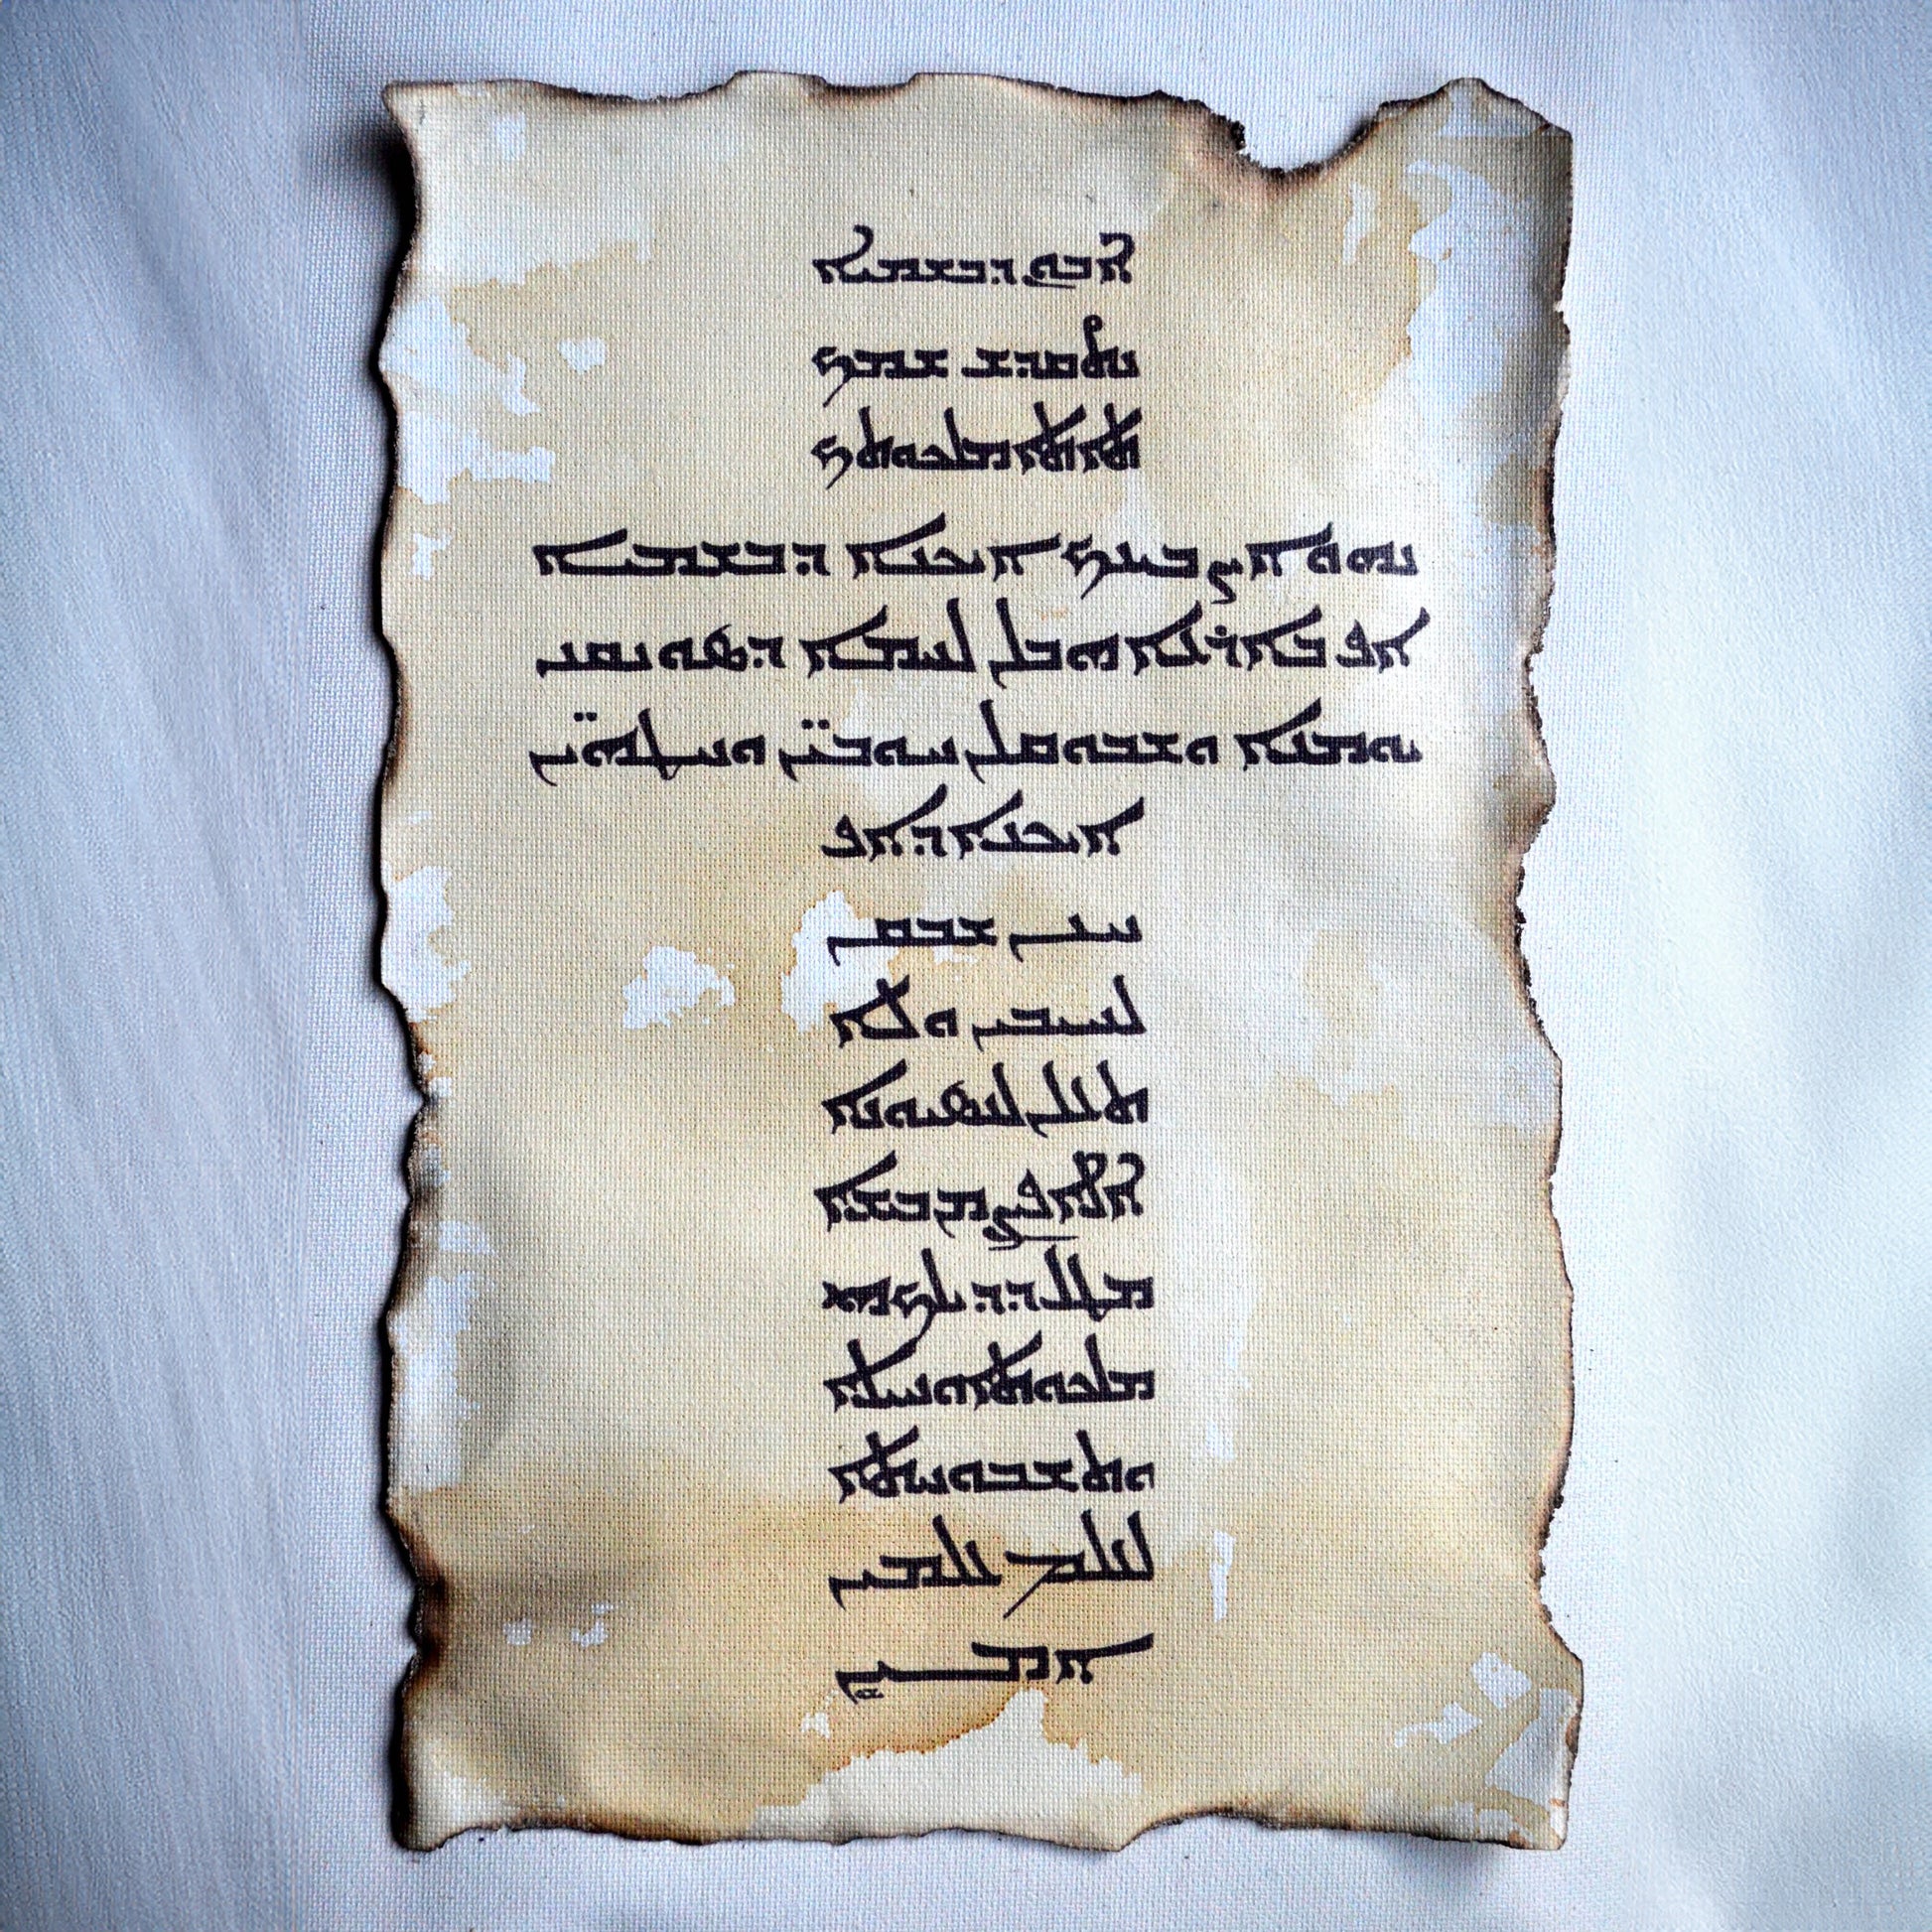 ܐܒܘܢ ܕܒܫܡܝܐ
ܢܬܩܕܫ ܫܡܟ
ܬܐܬܐ ܡܠܟܘܬܟ
ܢܗܘܐ ܨܒܝܢܟ ܐܝܟܢܐ ܕܒܫܡܝܐ
ܐܦ ܒܐܪ̈ܥܐ ܗܒܠܢ ܠܚܡܐ ܕܣܘܢܩܢ
ܝܘܡܢܐ ܘܫܒܘܩ ܠܢ ܚܘܒܝ̈ܢ ܘܚܛܗ̈ܝܢ
ܐܝܟܢܐ ܕܐܦ
ܚܢܢ ܫܒܩܢ
ܠܚܝܒܝܢ ܘܠܐ
ܬܥܠܢ ܠܢܣܝܘܢܐ
ܐܠܐ ܦܨܢ ܡܢ ܒܝܫܐ
ܡܛܠ ܕܕܝܠܟ ܗܝ
ܡܠܟܘܬܐ ܘܚܝܠܐ
ܘܬܫܒܘܚܬܐ
ܠܥܠܡ ܥܠܡܝܢ
ܐܡܝܢ